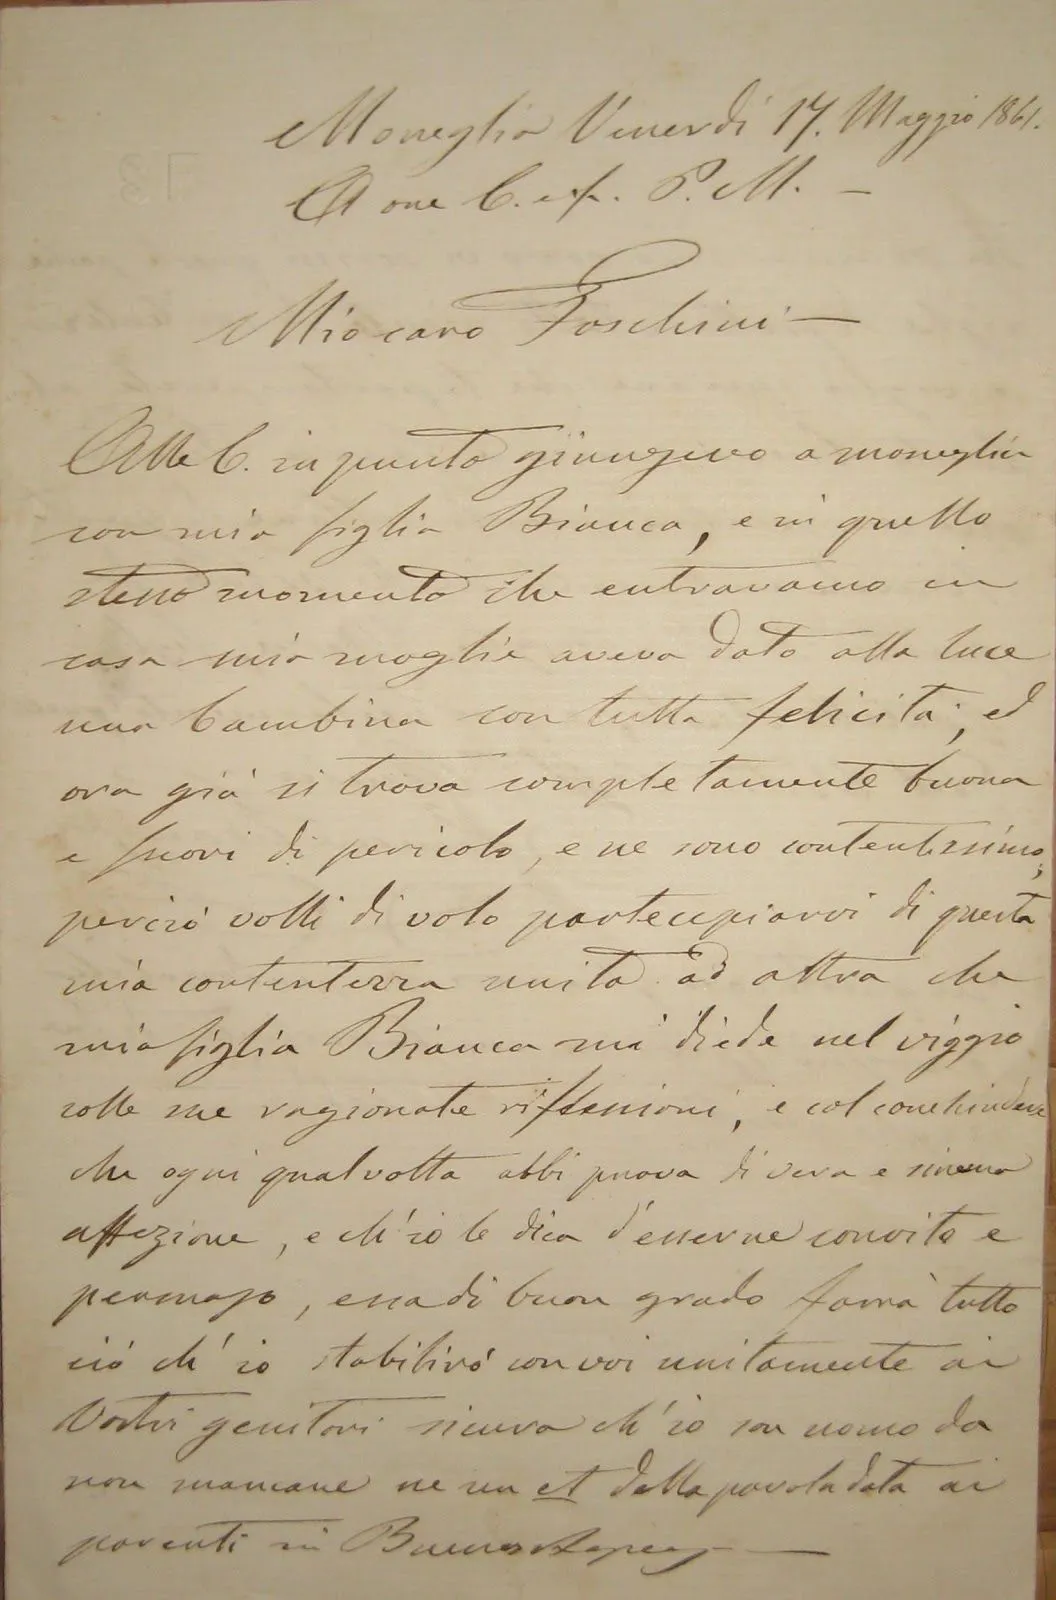 Moneglia Venerdi 17. Maggio 1861.
A ore 6. e ½. P. M. —
Mio caro Foschini —
Alle 6. in punto giungevo a moneglia
con mia figlia Bianca, e in quello
stesso momento che entravamo in
casa mia moglie aveva dato alla luce
una bambina con tutta felicità, ed
ora già si trova completamente buona
e fuori di pericolo, e ne sono contentissimo,
perciò volli di volo partecipiarvi di questa
mia contentezza unita ad altra che
mia figlia Bianca mi diede nel viggio
colle sue ragionate riflessioni, e col conchiudere
che ogni qualvolta abbi prova di vera e sincera
affezione, e ch'io le dica d'esserne convito e
permaso, essa di buon grado farrà tutto
ciò ch'io stabilirò con voi unitamente ai
Vostri genitori sicura ch'io son uomo da
non mancare ne un et della parola data ai
parenti in Buenos